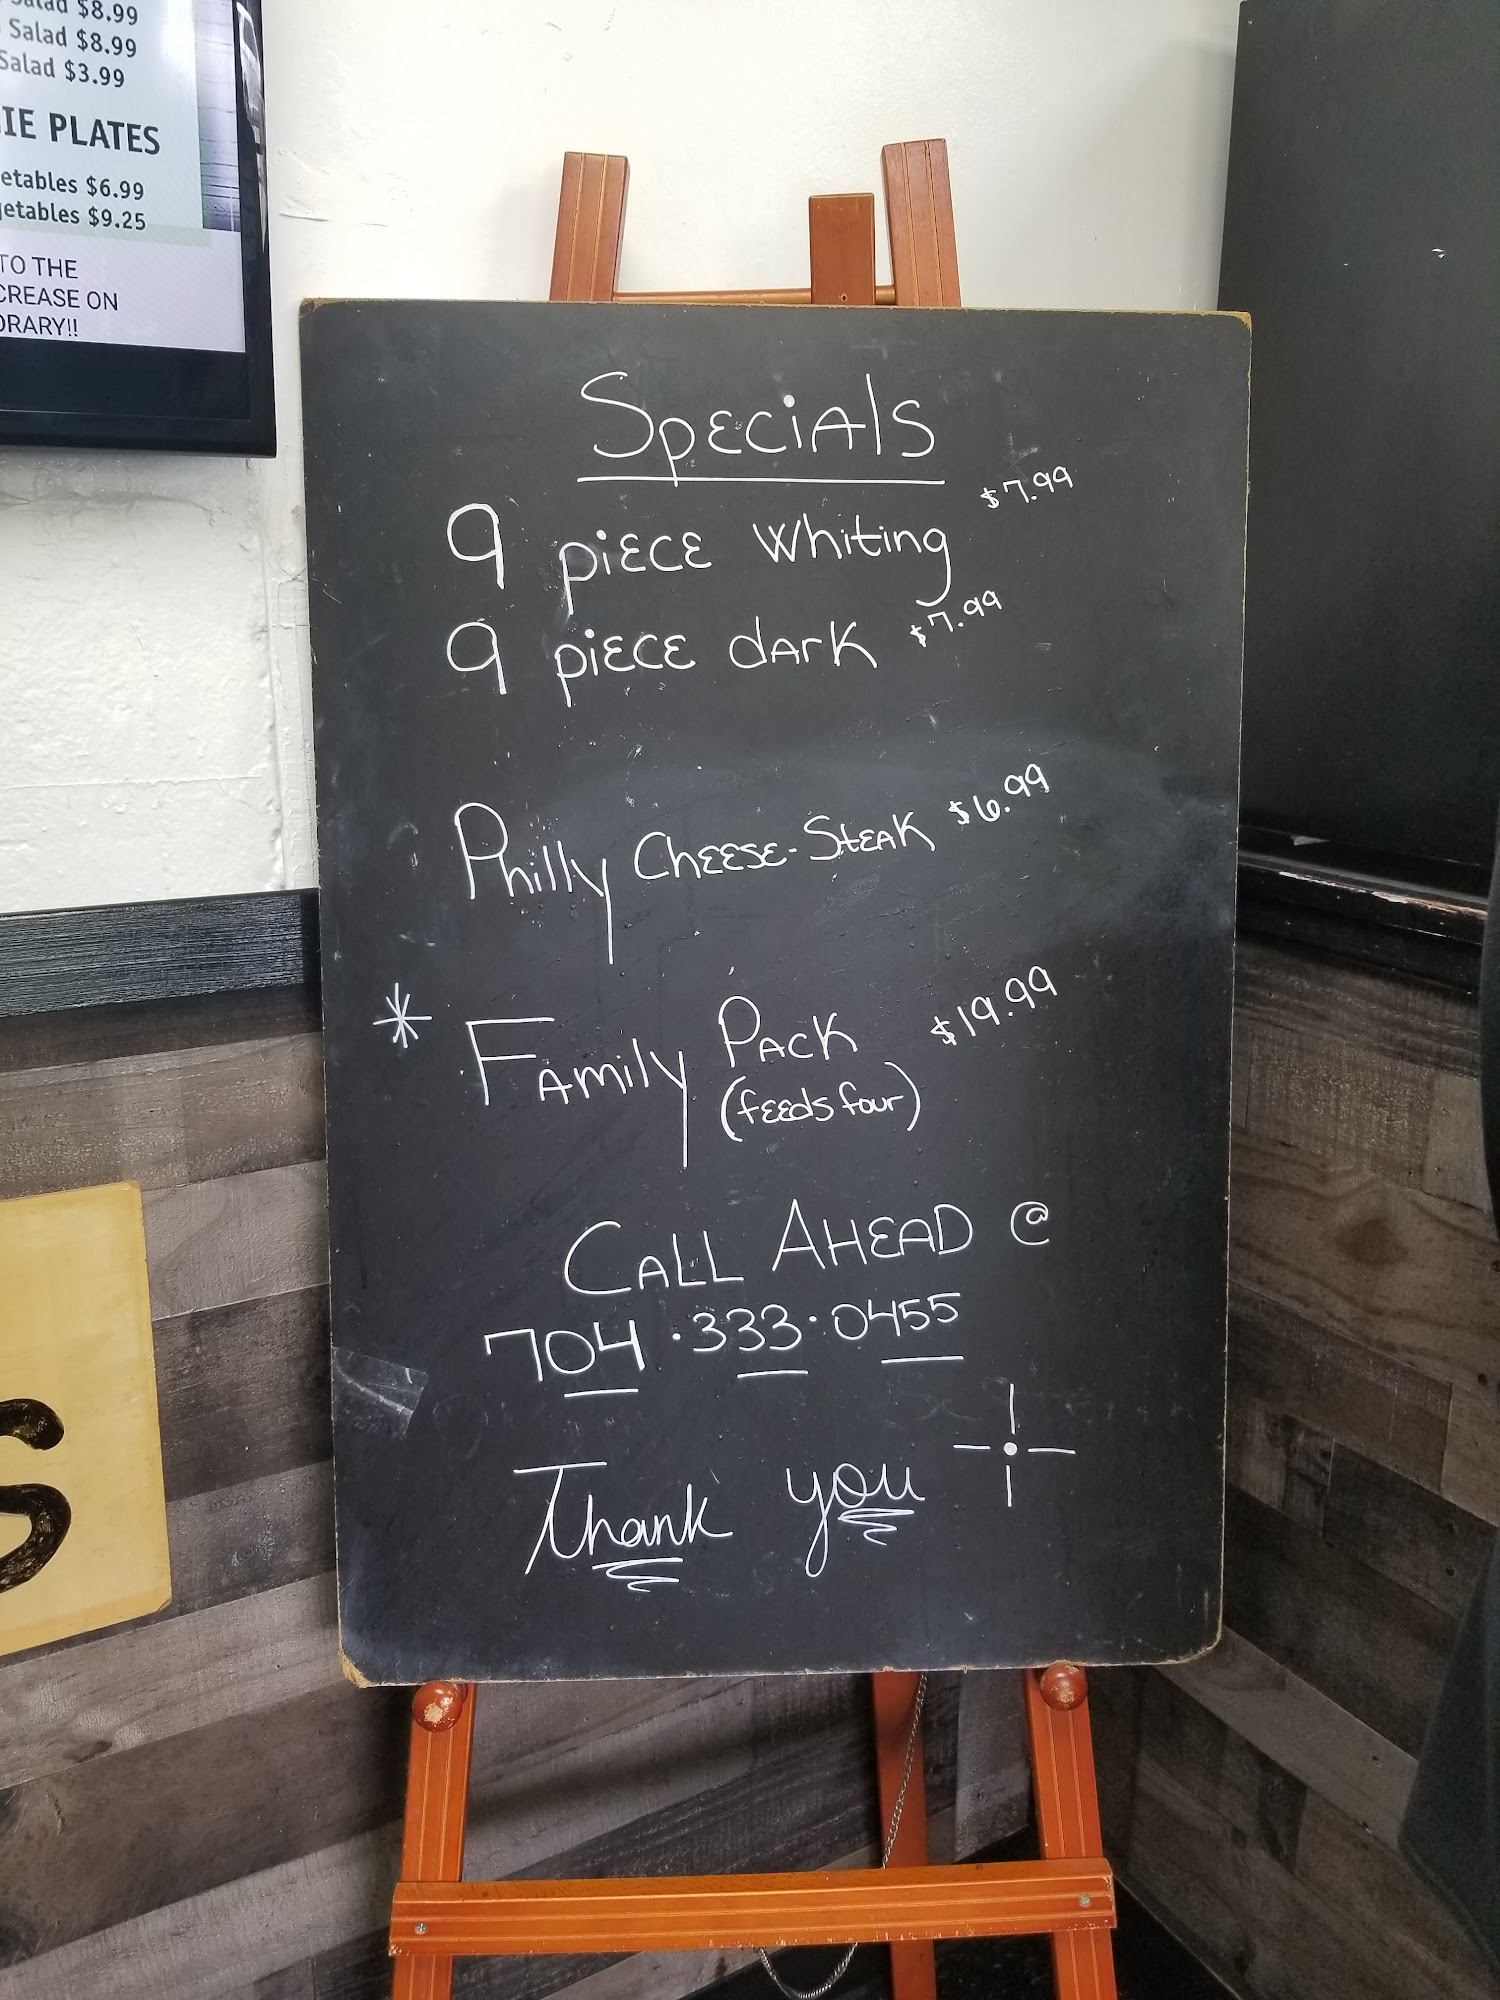 Salad $8.99
Salad $8.99
Salad $3.99
PLATES
$6.99
$9.25
TO THE
ON
Specials
9 piece Whiting $7.99
9 piece dark $7.99
Philly Cheese-Steak $6.99
* Family Pack $19.99
(feeds four)
Call Ahead @
704·333·0455
Thank you
S